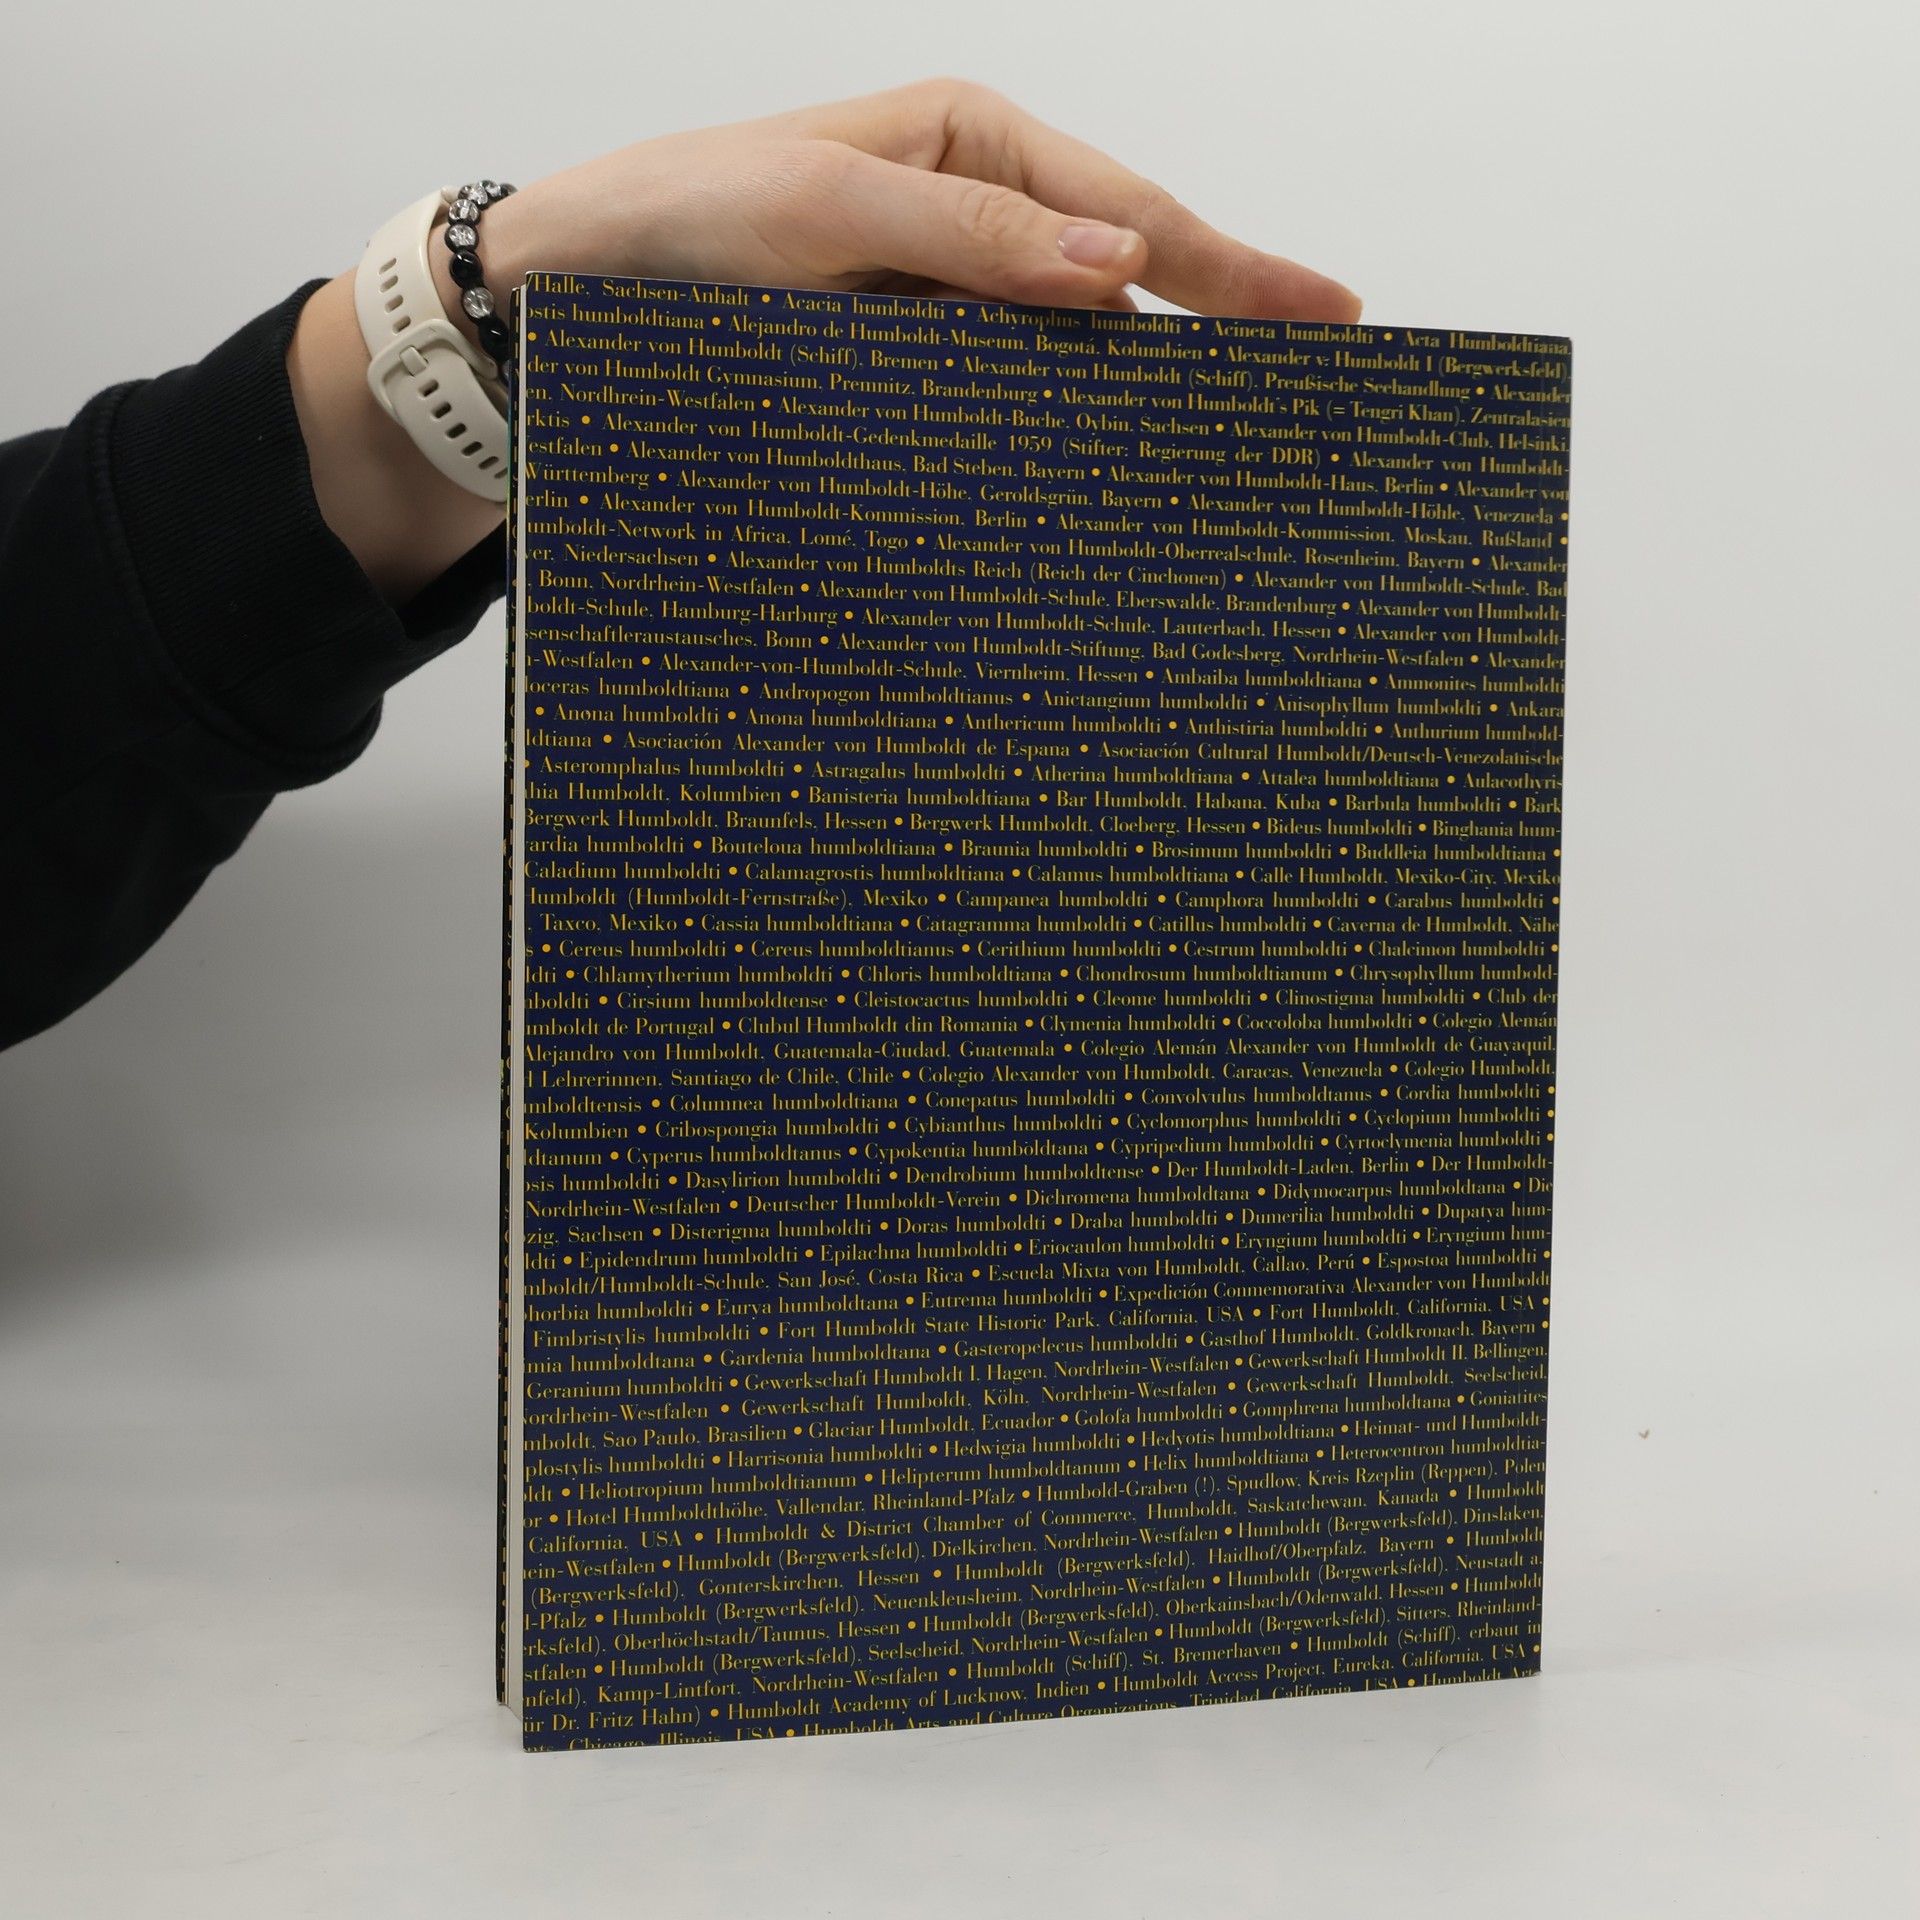 /Halle, Sachsen-Anhalt • Acacia humboldti • Achyrophus humboldti • Acineta humboldti • Acta Humboldtiana,
ostis humboldtiana • Alejandro de Humboldt-Museum, Bogotá, Kolumbien • Alexander v. Humboldt I (Bergwerksfeld),
• Alexander von Humboldt (Schiff), Bremen • Alexander von Humboldt (Schiff), Preußische Seehandlung • Alexander
der von Humboldt Gymnasium, Premnitz, Brandenburg • Alexander von Humboldt's Pik (= Tengri Khan), Zentralasien
en, Nordhrein-Westfalen • Alexander von Humboldt-Buche, Oybin, Sachsen • Alexander von Humboldt-Club, Helsinki,
rktis • Alexander von Humboldt-Gedenkmedaille 1959 (Stifter: Regierung der DDR) • Alexander von Humboldt-
estfalen • Alexander von Humboldthaus, Bad Steben, Bayern • Alexander von Humboldt-Haus, Berlin • Alexander von
Württemberg • Alexander von Humboldt-Höhe, Geroldsgrün, Bayern • Alexander von Humboldt-Höhle, Venezuela •
erlin • Alexander von Humboldt-Kommission, Berlin • Alexander von Humboldt-Kommission, Moskau, Rußland •
umboldt-Network in Africa, Lomé, Togo • Alexander von Humboldt-Oberrealschule, Rosenheim, Bayern • Alexander
ver, Niedersachsen • Alexander von Humboldts Reich (Reich der Cinchonen) • Alexander von Humboldt-Schule, Bad
, Bonn, Nordrhein-Westfalen • Alexander von Humboldt-Schule, Eberswalde, Brandenburg • Alexander von Humboldt-
boldt-Schule, Hamburg-Harburg • Alexander von Humboldt-Schule, Lauterbach, Hessen • Alexander von Humboldt-
ssenschaftleraustausches, Bonn • Alexander von Humboldt-Stiftung, Bad Godesberg, Nordrhein-Westfalen • Alexander
n-Westfalen • Alexander-von-Humboldt-Schule, Viernheim, Hessen • Ambaiba humboldtiana • Ammonites humboldti
loceras humboldtiana • Andropogon humboldtianus • Anictangium humboldti • Anisophyllum humboldti • Ankara
• Anona humboldti • Anona humboldtiana • Anthericum humboldti • Anthistiria humboldti • Anthurium humbold-
ldtiana • Asociación Alexander von Humboldt de Espana • Asociación Cultural Humboldt/Deutsch-Venezolanische
• Asteromphalus humboldti • Astragalus humboldti • Atherina humboldtiana • Attalea humboldtiana • Aulacothyris
hia Humboldt, Kolumbien • Banisteria humboldtiana • Bar Humboldt, Habana, Kuba • Barbula humboldti • Bark
Bergwerk Humboldt, Braunfels, Hessen • Bergwerk Humboldt, Cloeberg, Hessen • Bideus humboldti • Binghania hum-
ardia humboldti • Bouteloua humboldtiana • Braunia humboldti • Brosimum humboldti • Buddleia humboldtiana •
Caladium humboldti • Calamagrostis humboldtiana • Calamus humboldtiana • Calle Humboldt, Mexiko-City, Mexiko
Humboldt (Humboldt-Fernstraße), Mexiko • Campanea humboldti • Camphora humboldti • Carabus humboldti •
, Taxco, Mexiko • Cassia humboldtiana • Catagramma humboldti • Catillus humboldti • Caverna de Humboldt, Nähe
s • Cereus humboldti • Cereus humboldtianus • Cerithium humboldti • Cestrum humboldti • Chalcimon humboldti •
ldti • Chlamytherium humboldti • Chloris humboldtiana • Chondrosum humboldtianum • Chrysophyllum humbold-
mboldti • Cirsium humboldtense • Cleistocactus humboldti • Cleome humboldti • Clinostigma humboldti • Club der
umboldt de Portugal • Clubul Humboldt din Romania • Clymenia humboldti • Coccoloba humboldti • Colegio Alemán
Alejandro von Humboldt, Guatemala-Ciudad, Guatemala • Colegio Alemán Alexander von Humboldt de Guayaquil,
d Lehrerinnen, Santiago de Chile, Chile • Colegio Alexander von Humboldt, Caracas, Venezuela • Colegio Humboldt,
mboldtensis • Columnea humboldtiana • Conepatus humboldti • Convolvulus humboldtanus • Cordia humboldti •
Kolumbien • Cribospongia humboldti • Cybianthus humboldti • Cyclomorphus humboldti • Cyclopium humboldti •
ldtanum • Cyperus humboldtanus • Cypokentia humboldtana • Cypripedium humboldti • Cyrtoclymenia humboldti •
psis humboldti • Dasylirion humboldti • Dendrobium humboldtense • Der Humboldt-Laden, Berlin • Der Humboldt-
Nordrhein-Westfalen • Deutscher Humboldt-Verein • Dichromena humboldtana • Didymocarpus humboldtana • Die
zig, Sachsen • Disterigma humboldti • Doras humboldti • Draba humboldti • Dumerilia humboldti • Dupatya hum-
ldti • Epidendrum humboldti • Epilachna humboldti • Eriocaulon humboldti • Eryngium humboldti • Eryngium hum-
mboldt/Humboldt-Schule, San José, Costa Rica • Escuela Mixta von Humboldt, Callao, Perú • Espostoa humboldti •
phorbia humboldti • Eurya humboldtana • Eutrema humboldti • Expedición Conmemorativa Alexander von Humboldt
Fimbristylis humboldti • Fort Humboldt State Historic Park, California, USA • Fort Humboldt, California, USA •
mia humboldtana • Gardenia humboldtana • Gasteropelecus humboldti • Gasthof Humboldt, Goldkronach, Bayern •
Geranium humboldti • Gewerkschaft Humboldt I, Hagen, Nordrhein-Westfalen • Gewerkschaft Humboldt II, Bellingen,
Nordrhein-Westfalen • Gewerkschaft Humboldt, Köln, Nordrhein-Westfalen • Gewerkschaft Humboldt, Seelscheid,
mboldt, Sao Paulo, Brasilien • Glaciar Humboldt, Ecuador • Golofa humboldti • Gomphrena humboldtana • Goniatites
plostylis humboldti • Harrisonia humboldti • Hedwigia humboldti • Hedyotis humboldtiana • Heimat- und Humboldt-
oldt • Heliotropium humboldtianum • Helipterum humboldtanum • Helix humboldtiana • Heterocentron humboldtia-
or • Hotel Humboldthöhe, Vallendar, Rheinland-Pfalz • Humbold-Graben (!), Spudlow, Kreis Rzeplin (Reppen), Polen
California, USA • Humboldt & District Chamber of Commerce, Humboldt, Saskatchewan, Kanada • Humboldt
ein-Westfalen • Humboldt (Bergwerksfeld), Dielkirchen, Nordrhein-Westfalen • Humboldt (Bergwerksfeld), Dinslaken,
(Bergwerksfeld), Gonterskirchen, Hessen • Humboldt (Bergwerksfeld), Haidhof/Oberpfalz, Bayern • Humboldt
l-Pfalz • Humboldt (Bergwerksfeld), Neuenkleusheim, Nordrhein-Westfalen • Humboldt (Bergwerksfeld), Neustadt a.
rksfeld), Oberhöchstadt/Taunus, Hessen • Humboldt (Bergwerksfeld), Oberkainsbach/Odenwald, Hessen • Humboldt
stfalen • Humboldt (Bergwerksfeld), Seelscheid, Nordrhein-Westfalen • Humboldt (Bergwerksfeld), Sitters, Rheinland-
nfeld), Kamp-Lintfort, Nordrhein-Westfalen • Humboldt (Schiff), St. Bremerhaven • Humboldt (Schiff), erbaut in
ür Dr. Fritz Hahn) • Humboldt Academy of Lucknow, Indien • Humboldt Access Project, Eureka, California, USA •
nts, Chicago, Illinois, USA • Humboldt Arts and Culture Organizations, Trinidad, California, USA • Humboldt Arts